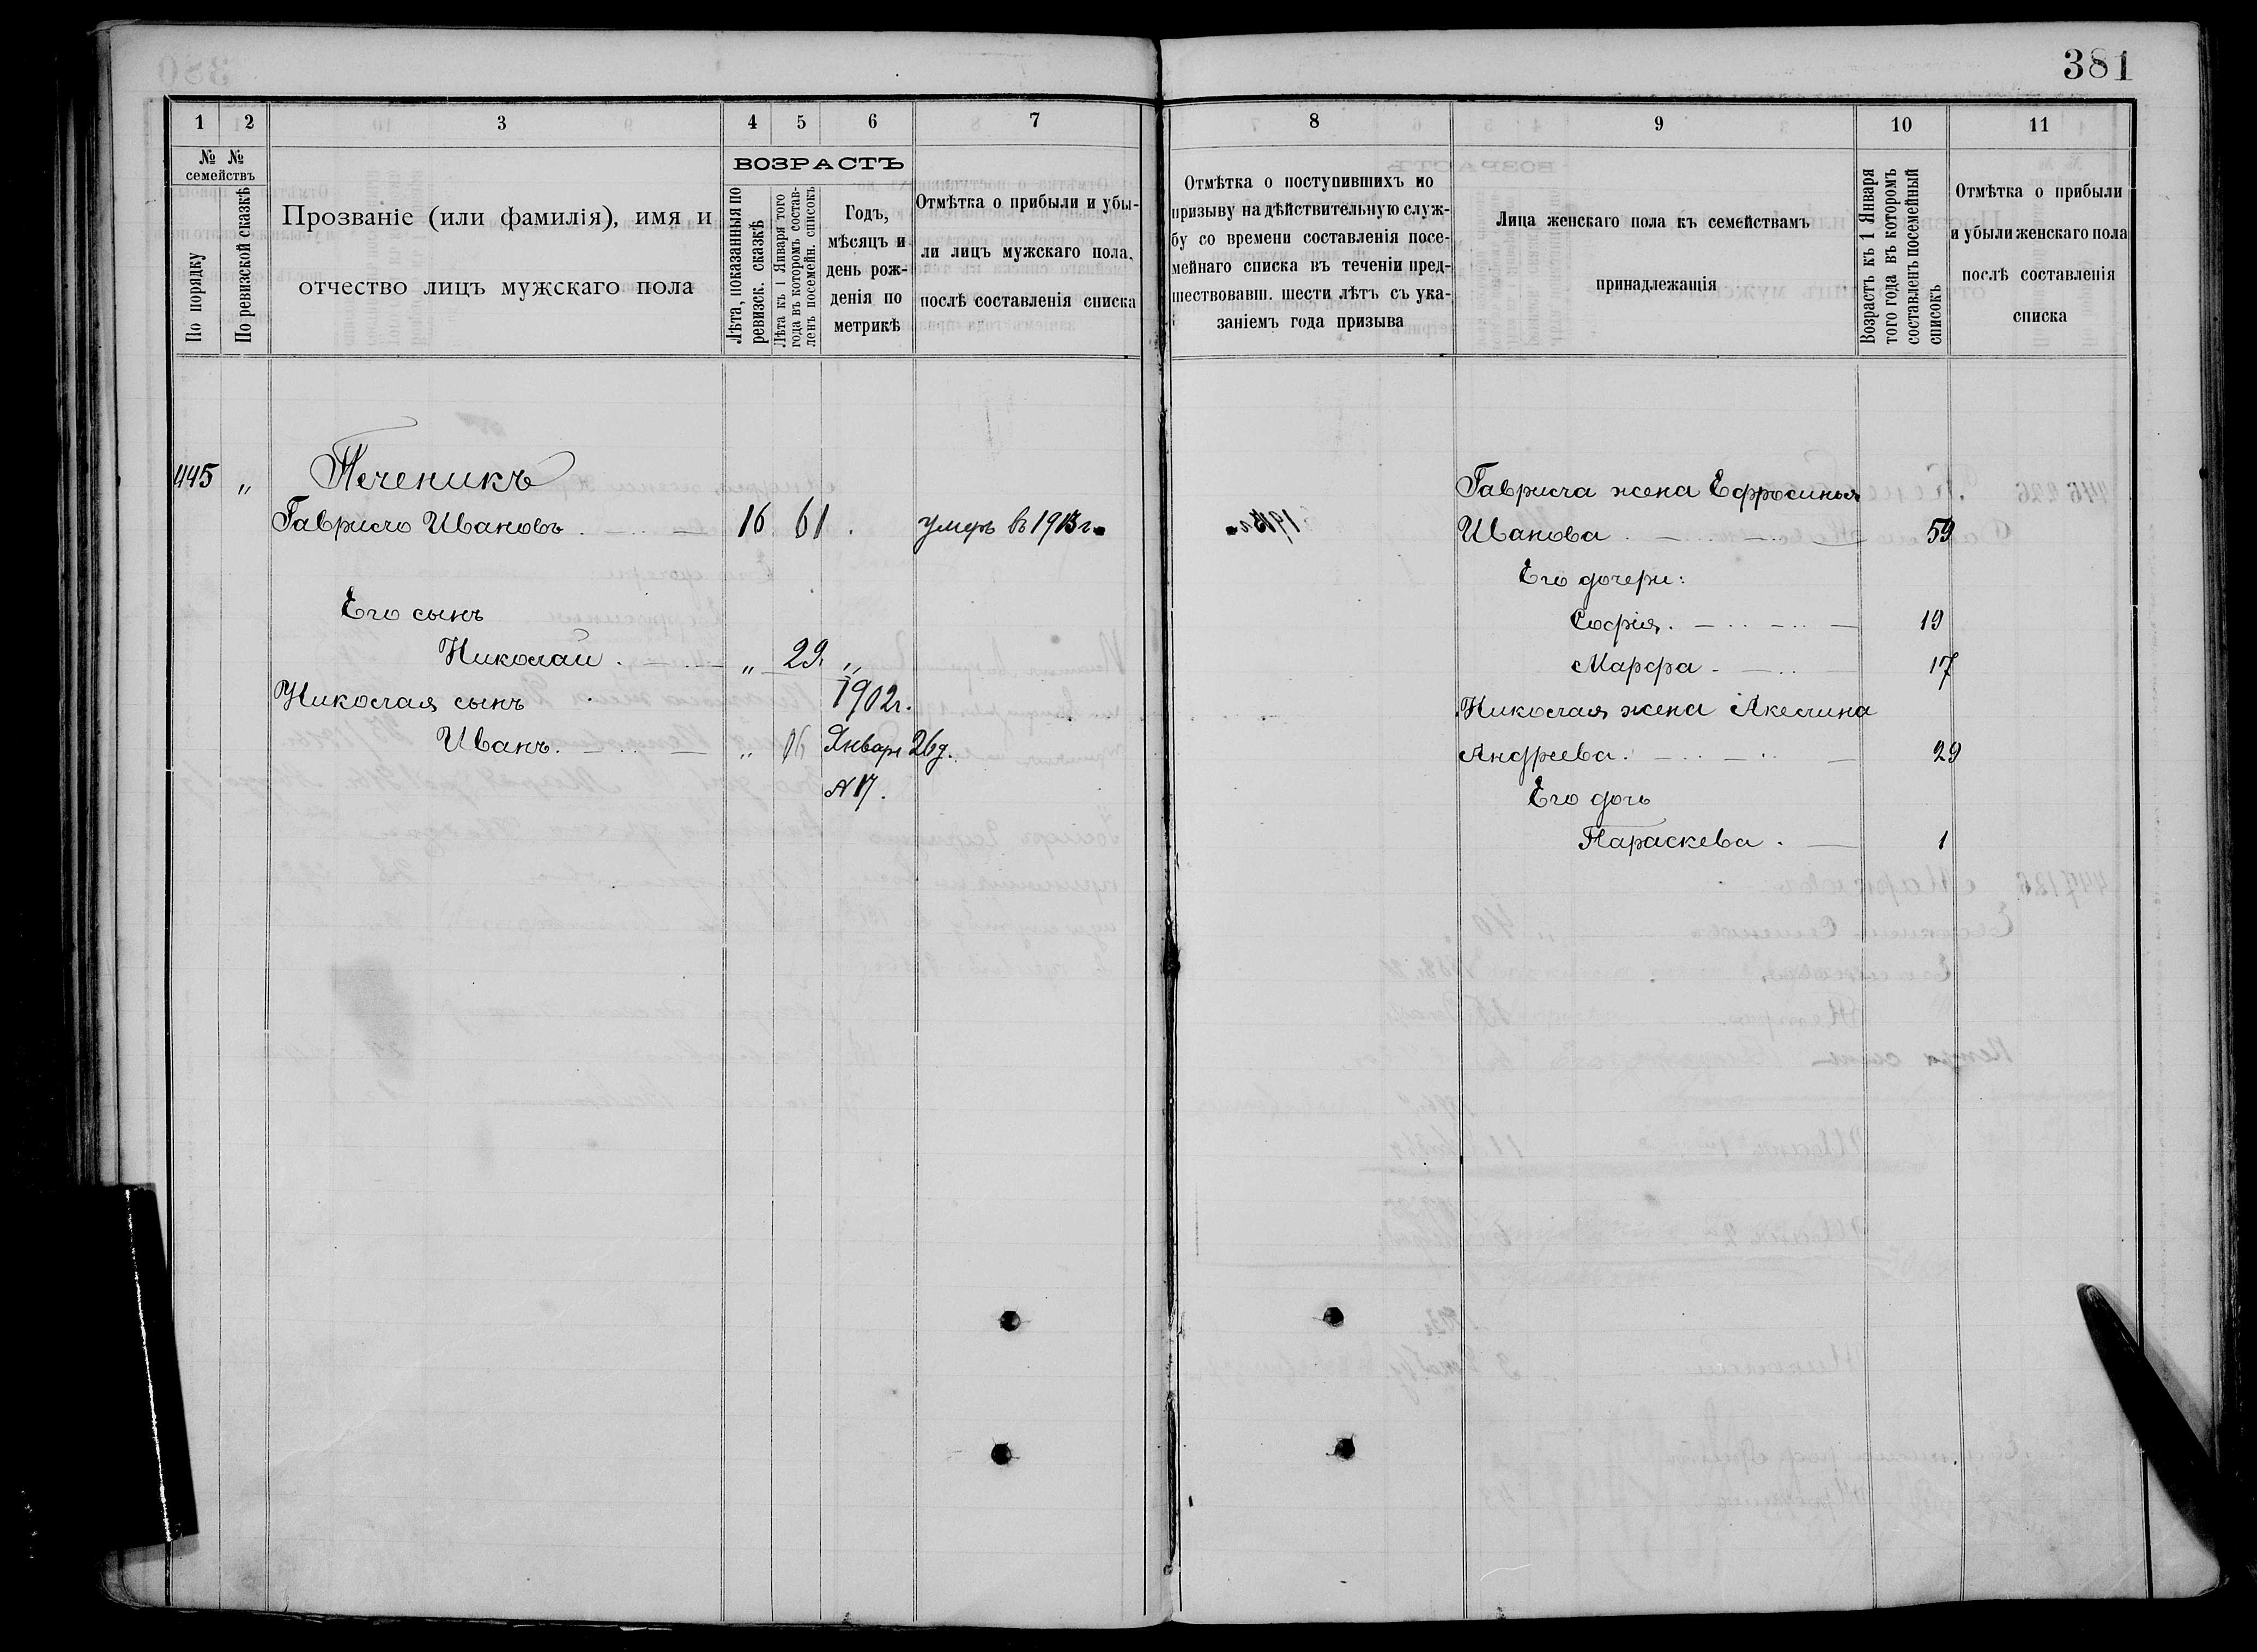 381
1 2 3 4 5 6 7
№ № семействъ
По порядку
По ревизской сказкѣ
Прозваніе (или фамилія), имя и
отчество лицъ мужскаго пола
ВОЗРАСТЪ
Лѣта, показанныя по
ревизск. сказкѣ
Лѣта къ 1 Января того
года въ которомъ состав-
ленъ посемейн. списокъ
Годъ,
мѣсяцъ и
день рож-
денія по
метрикѣ
Отмѣтка о прибыли и убы-
ли лицъ мужскаго пола,
послѣ составленія списка
8 9 10 11
Отмѣтка о поступившихъ по
призыву на дѣйствительную служ-
бу со времени составленія посе-
мейнаго списка въ теченіи пред-
шествовавш. шести лѣтъ съ ука-
заніемъ года призыва
Лица женскаго пола къ семействамъ
принадлежащія
Возрастъ къ 1 Января
того года въ которомъ
составленъ посемейный
списокъ
Отмѣтка о прибыли
и убыли женскаго пола
послѣ составленія
списка
445 „ Печеникъ
Гаврило Ивановъ. 16 61. умеръ въ 1913 г.
Его сынъ
Николай. „ 29. „
Николая сынъ 1902 г.
Иванъ. „ Январь 26 д.
№ 17.
Гаврила жена Ефросинья
Иванова. 59
Его дочери:
Софія. 19
Марфа. 17
Николая жена Акелина
Андреева. 29
Его дочь
Параскева. 1